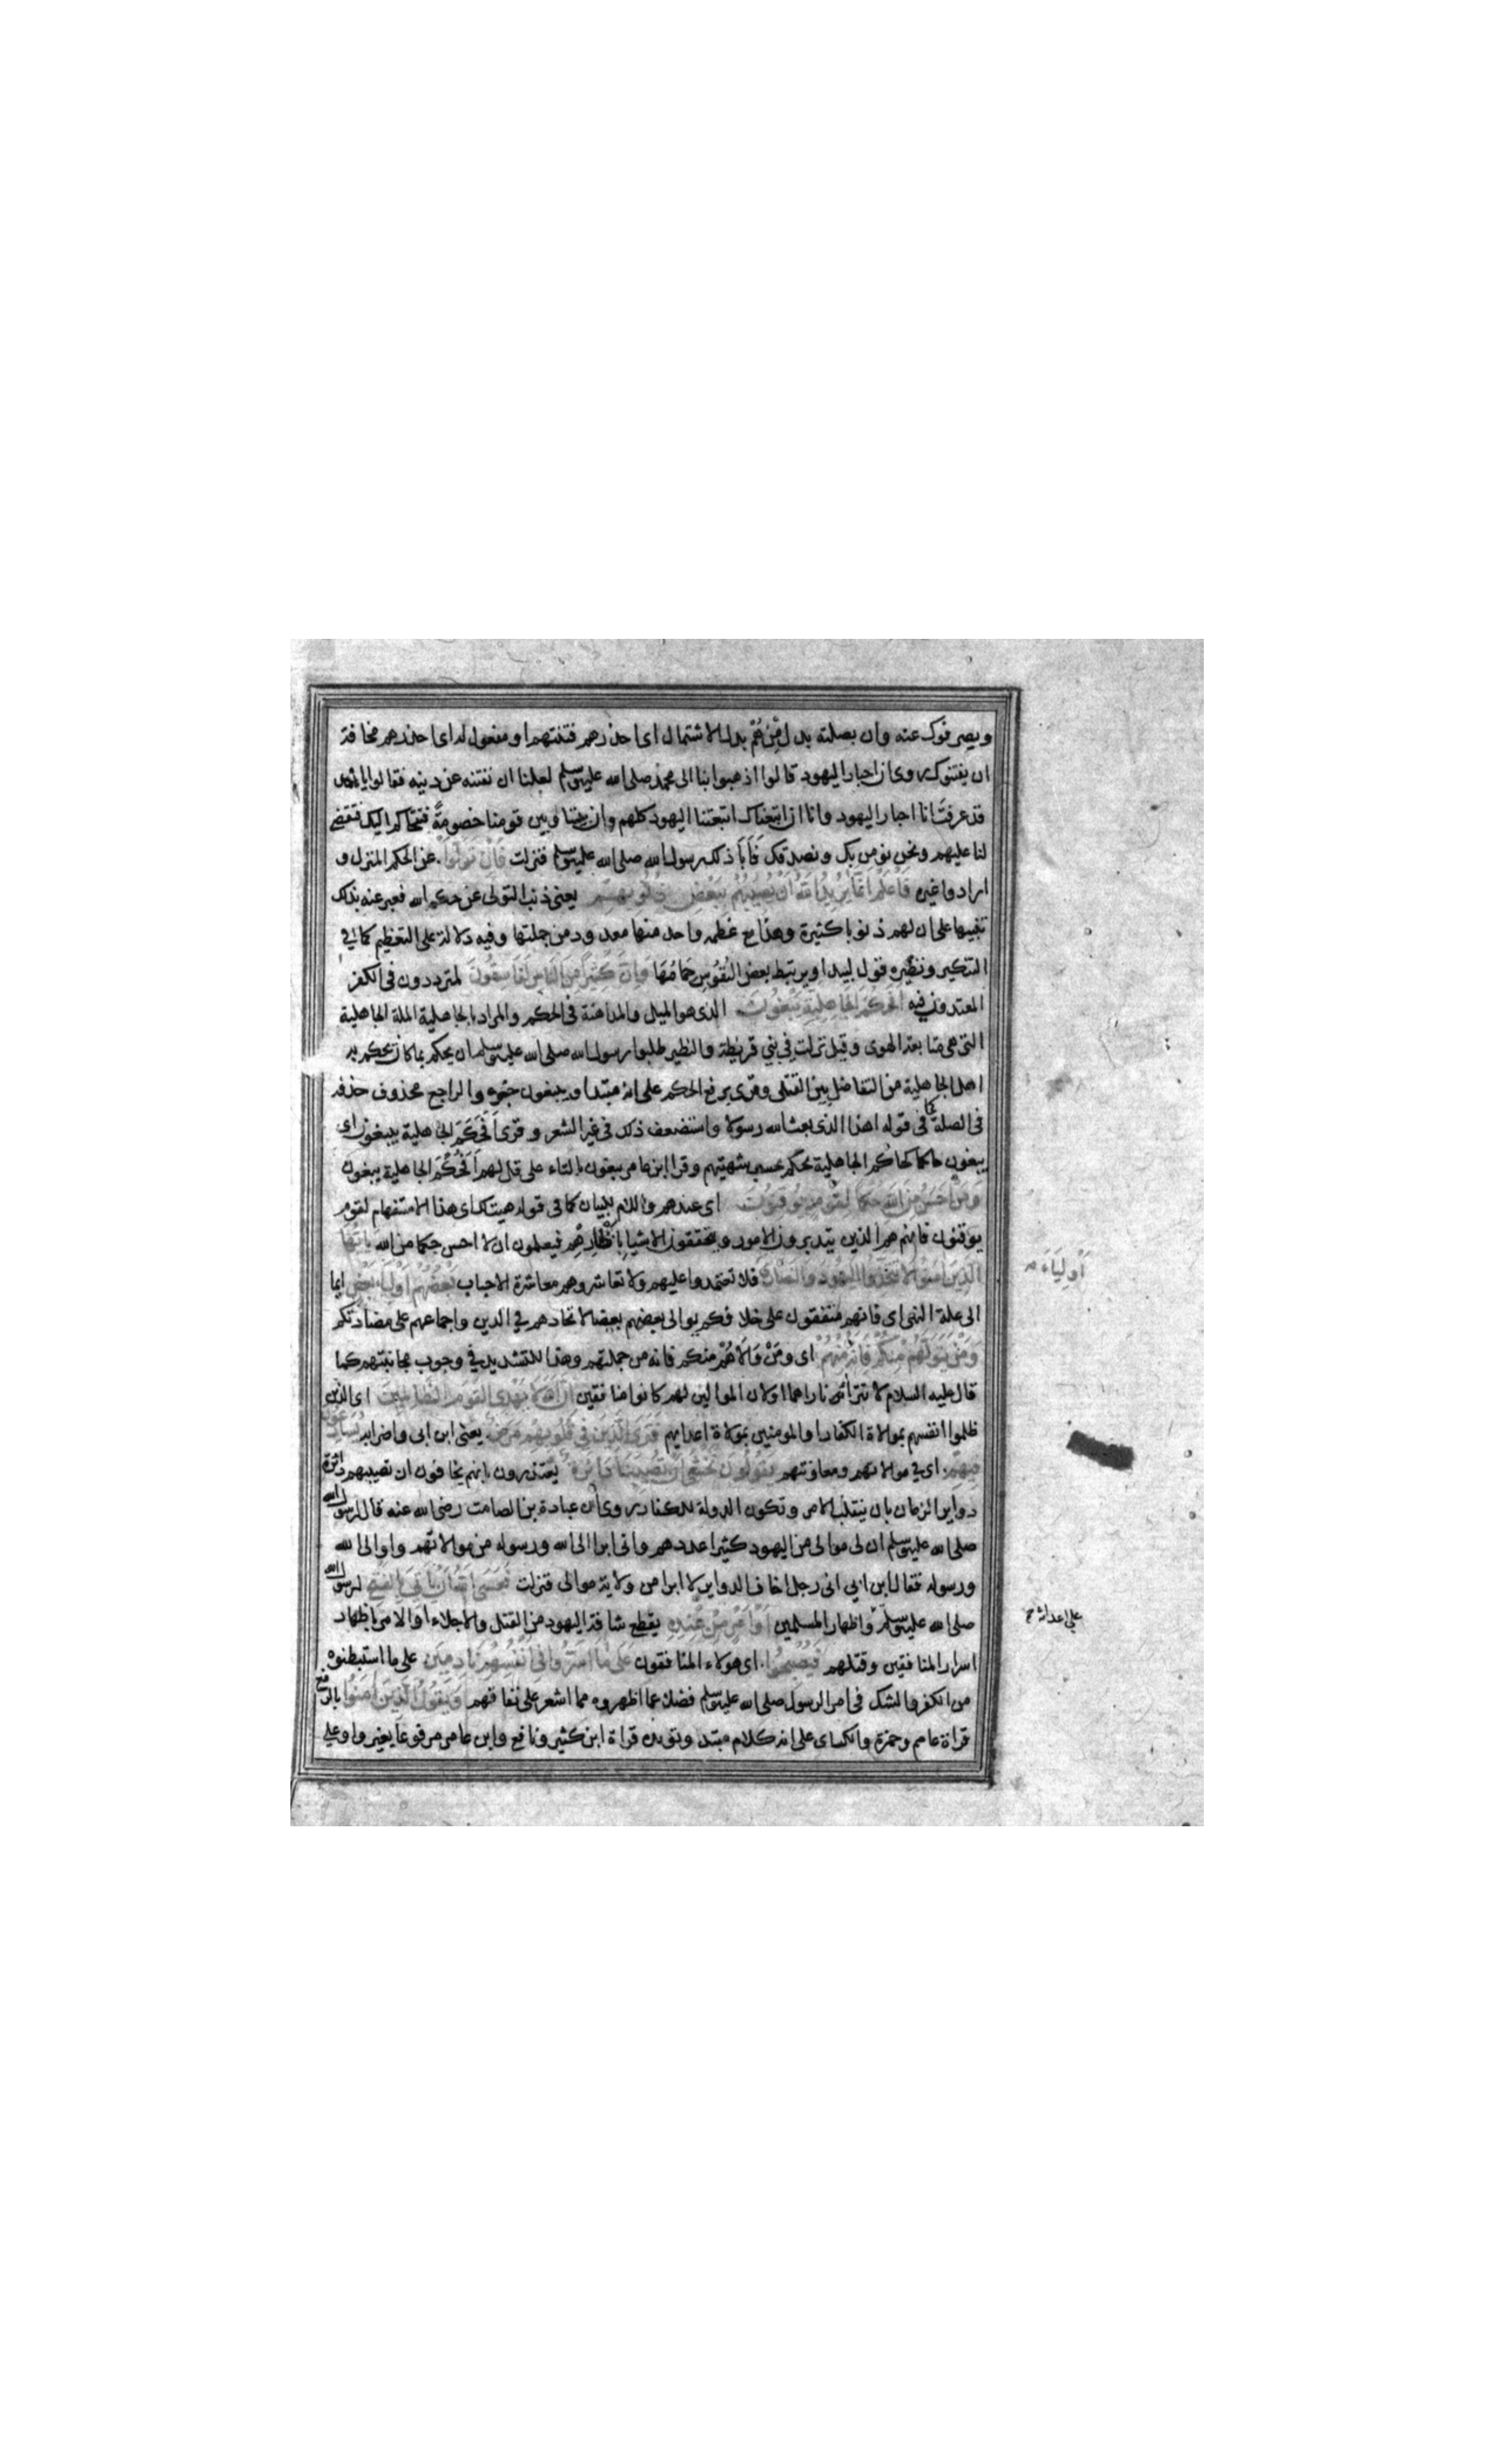 ويصرفوك عنه وان بصلته بدل من هُمْ بدل الاشتمال اى احذرهم فتنتهم او مفعول له اى احذرهم مخافة
ان يفتنوك روى ان احبار اليهود قالوا اذهبوا بنا الى محمد صلى الله عليه وسلم لعلنا ان نفتنه عن دينه فقالوا يا محمد
قد عرفت انا احبار اليهود وانا ان اتبعناك اتبعتنا اليهود كلهم وان بيننا وبين قومنا خصومةً فنتحاكم اليك فتقضى
لنا عليهم ونحن نؤمن بك ونصدقك فأبا ذلك رسول الله صلى الله عليه وسلم فنزلت فَاِنْ تَوَلَّوْا عن الحكم المنزل و
ارادوا غيره فَاعْلَمْ اَنَّمَا يُرِيدُ اللهُ اَنْ يُصِيبَهُمْ بِبَعْضِ ذُنُوبِهِمْ يعنى ذنب التولى عن حكم الله فعبر عنه بذلك
تنبيها على ان لهم ذنوبا كثيرة وهذا مع عظمه واحد منها معدود من جملتها وفيه دلالة على التعظيم كما فى
التنكير ونظيره قول لبيد او يرتبط بعض النفوس حمامُها وَاِنَّ كَثِيرًا مِنَ النَّاسِ لَفَاسِقُونَ لمتردون فى الكفر
المعتدون فيه اَفَحُكْمَ الْجَاهِلِيَّةِ يَبْغُونَ الذى هو الميل والمداهنة فى الحكم والمراد بالجاهلية الملة الجاهلية
التى هى متابعة الهوى وقيل نزلت فى بني قريظة والنظير طلبوا رسول الله صلى الله عليه وسلم ان يحكم بما كان يحكم به
اهل الجاهلية من التفاضل بين القتلى وقرى برفع الحكم على انه مبتدا ويبغون خبره والراجع محذوف حذفه
فى الصلة كما فى قوله اهذا الذى بعث الله رسولا واستضعف ذلك فى غير الشعر وقرى اَفَحَكَمَ الجاهلية يبغون اى
يبغون حاكما كحاكم الجاهلية يحكم بحسب شهيتهم وقرا ابن عامر تبغون بالتاء على قل لهم اَفَحُكْمَ الجاهلية تبغون
وَمَنْ اَحْسَنُ مِنَ اللهِ حُكْمًا لِقَوْمٍ يُوقِنُونَ اى عندهم واللام للبيان كما فى قوله هيت لك اى هذا الاستفهام لقوم
يوقنون فانهم هم الذين يتدبرون الامور ويتحققون الاشيا بانظارهم فيعلمون ان لا احسن حكما من الله يَا اَيُّهَا
الَّذِينَ اٰمَنُوا لَا تَتَّخِذُوا الْيَهُودَ وَالنَّصَارَى فلا تعتمدوا عليهم ولا تعاشروهم معاشرة الاحباب بَعْضُهُمْ اَوْلِيَاءُ بَعْضٍ ايما
اَوْلِيَاءَ
الى علة النهى اى فانهم متفقون على خلافكم يوالى بعضهم بعضا لاتحادهم فى الدين واجماعهم على مضادتكم
وَمَنْ يَتَوَلَّهُمْ مِنْكُمْ فَاِنَّهُ مِنْهُمْ اى ومَنْ وَالَاهُمْ منكم فانه من جملتهم وهذا للتشديد فى وجوب مجانبتهم كما
قال عليه السلام لا تترائى ناراهما او لان الموالين لهم كانوا منافقين اِنَّ اللهَ لَا يَهْدِى الْقَوْمَ الظَّالِمِينَ اى الذين
ظلموا انفسهم بموالاة الكفار او المومنين بموالاة اعدايهم فَتَرَى الَّذِينَ فِى قُلُوبِهِمْ مَرَضٌ يعنى ابن ابى واضرابه يُسَارِعُونَ
فِيهِمْ اى فى موالاتهم ومعاونتهم يَقُولُونَ نَخْشَى اَنْ تُصِيبَنَا دَائِرَةٌ يعتذرون بانهم يخافون ان تصيبهم دائرة
دواير الزمان بان ينقلب الامر وتكون الدولة للكفار روى ان عبادة بن الصامت رضى الله عنه قال لرسول الله
صلى الله عليه وسلم ان لى موالى من اليهود كثيرا عددهم وانى ابرا الى الله ورسوله من موالاتهم واوالى الله
ورسوله فقال ابن ابي انى رجل اخاف الدواير لا ابرا من ولاية موالى فنزلت فَعَسَى اللهُ اَنْ يَأْتِىَ بِالْفَتْحِ لرسول الله
صلى الله عليه وسلم واظهار المسلمين اَوْ اَمْرٍ مِنْ عِنْدِهِ يقطع شافة اليهود من القتل والاجلاء او الامر باظهار
على اعدائه
اسرار المنافقين وقتلهم فَيُصْبِحُوا اى هولاء المنافقون عَلَى مَا اَسَرُّوا فِى اَنْفُسِهِمْ نَادِمِينَ على ما استبطنوه
من الكفر والشك فى امر الرسول صلى الله عليه وسلم فضلا عما اظهروه مما اشعر على نفاقهم وَيَقُولُ الَّذِينَ اٰمَنُوا بالرفع
قراة عاصم وحمزة والكساى على انه كلام مبتدا ويؤيده قراة ابن كثير ونافع وابن عامر مرفوعا بغير واو على